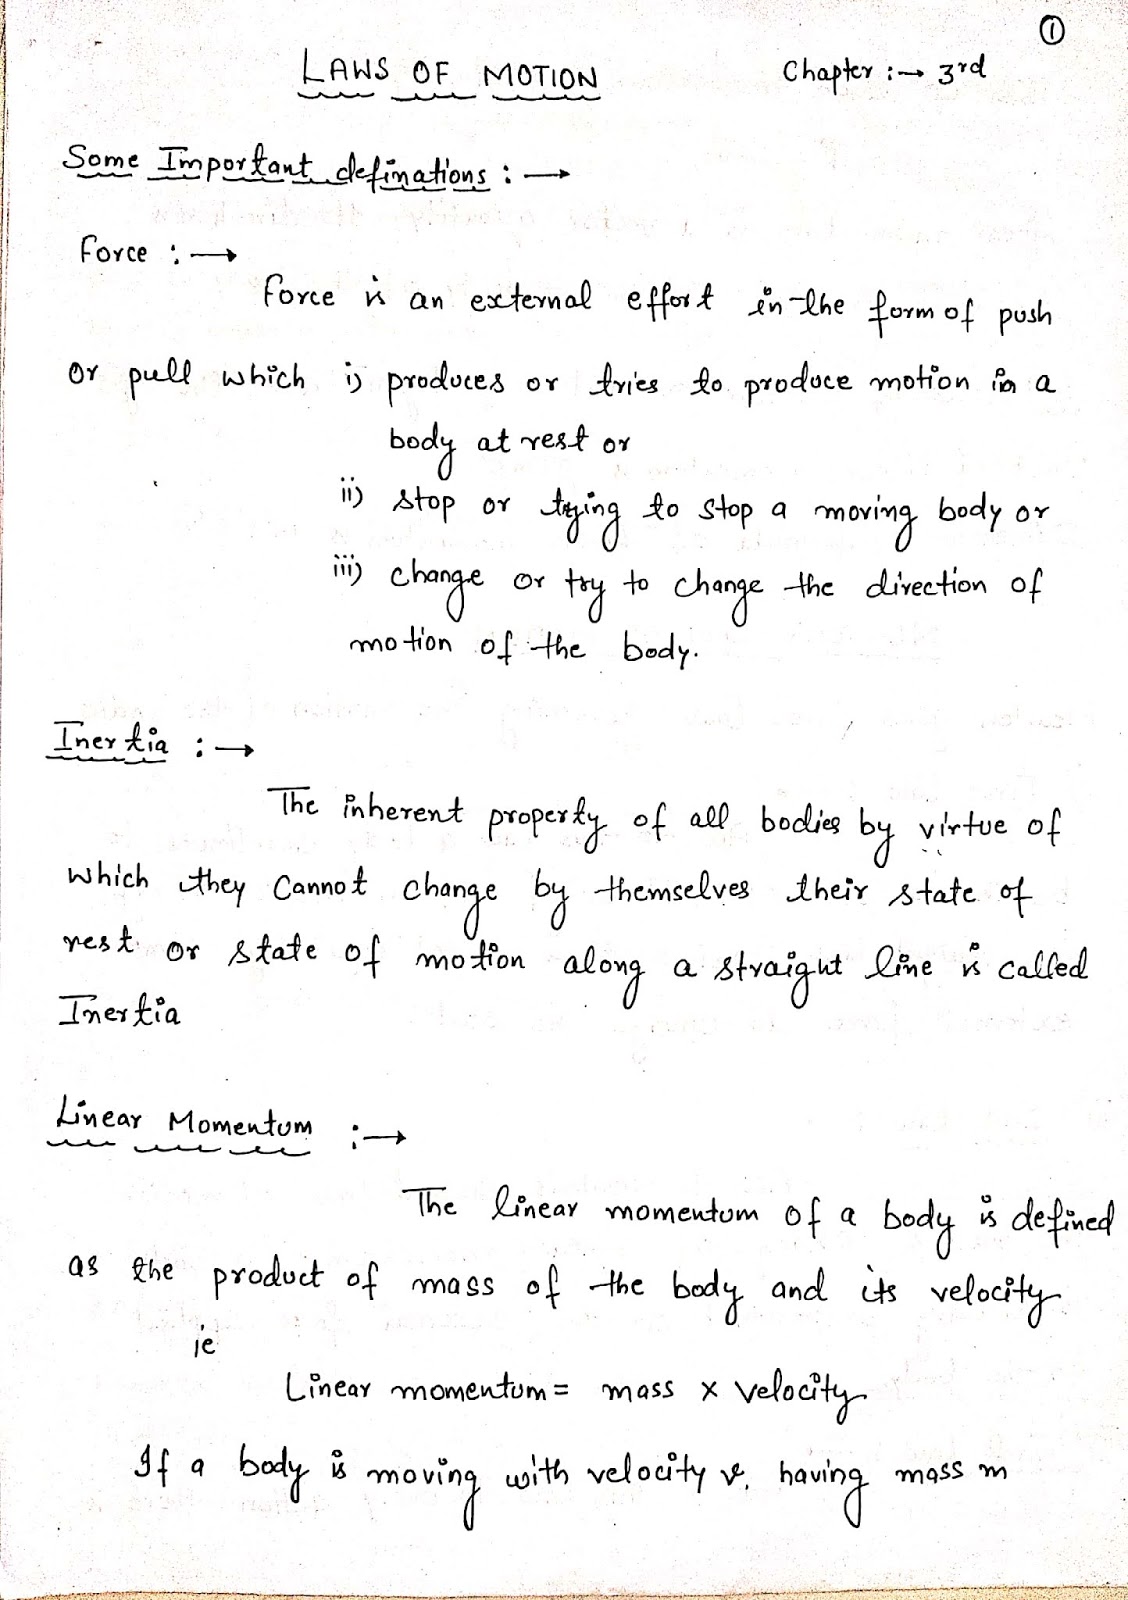 ①
LAWS OF MOTION Chapter :→ 3rd
Some Important definations :→
Force :→
Force is an external effort in the form of push
or pull which i) produces or tries to produce motion in a
body at rest or
ii) stop or trying to stop a moving body or
iii) change or try to change the direction of
motion of the body.
Inertia :→
The inherent property of all bodies by virtue of
which they cannot change by themselves their state of
rest or state of motion along a straight line is called
Inertia
Linear Momentum :→
The linear momentum of a body is defined
as the product of mass of the body and its velocity
ie
Linear momentum = mass x velocity
If a body is moving with velocity v, having mass m